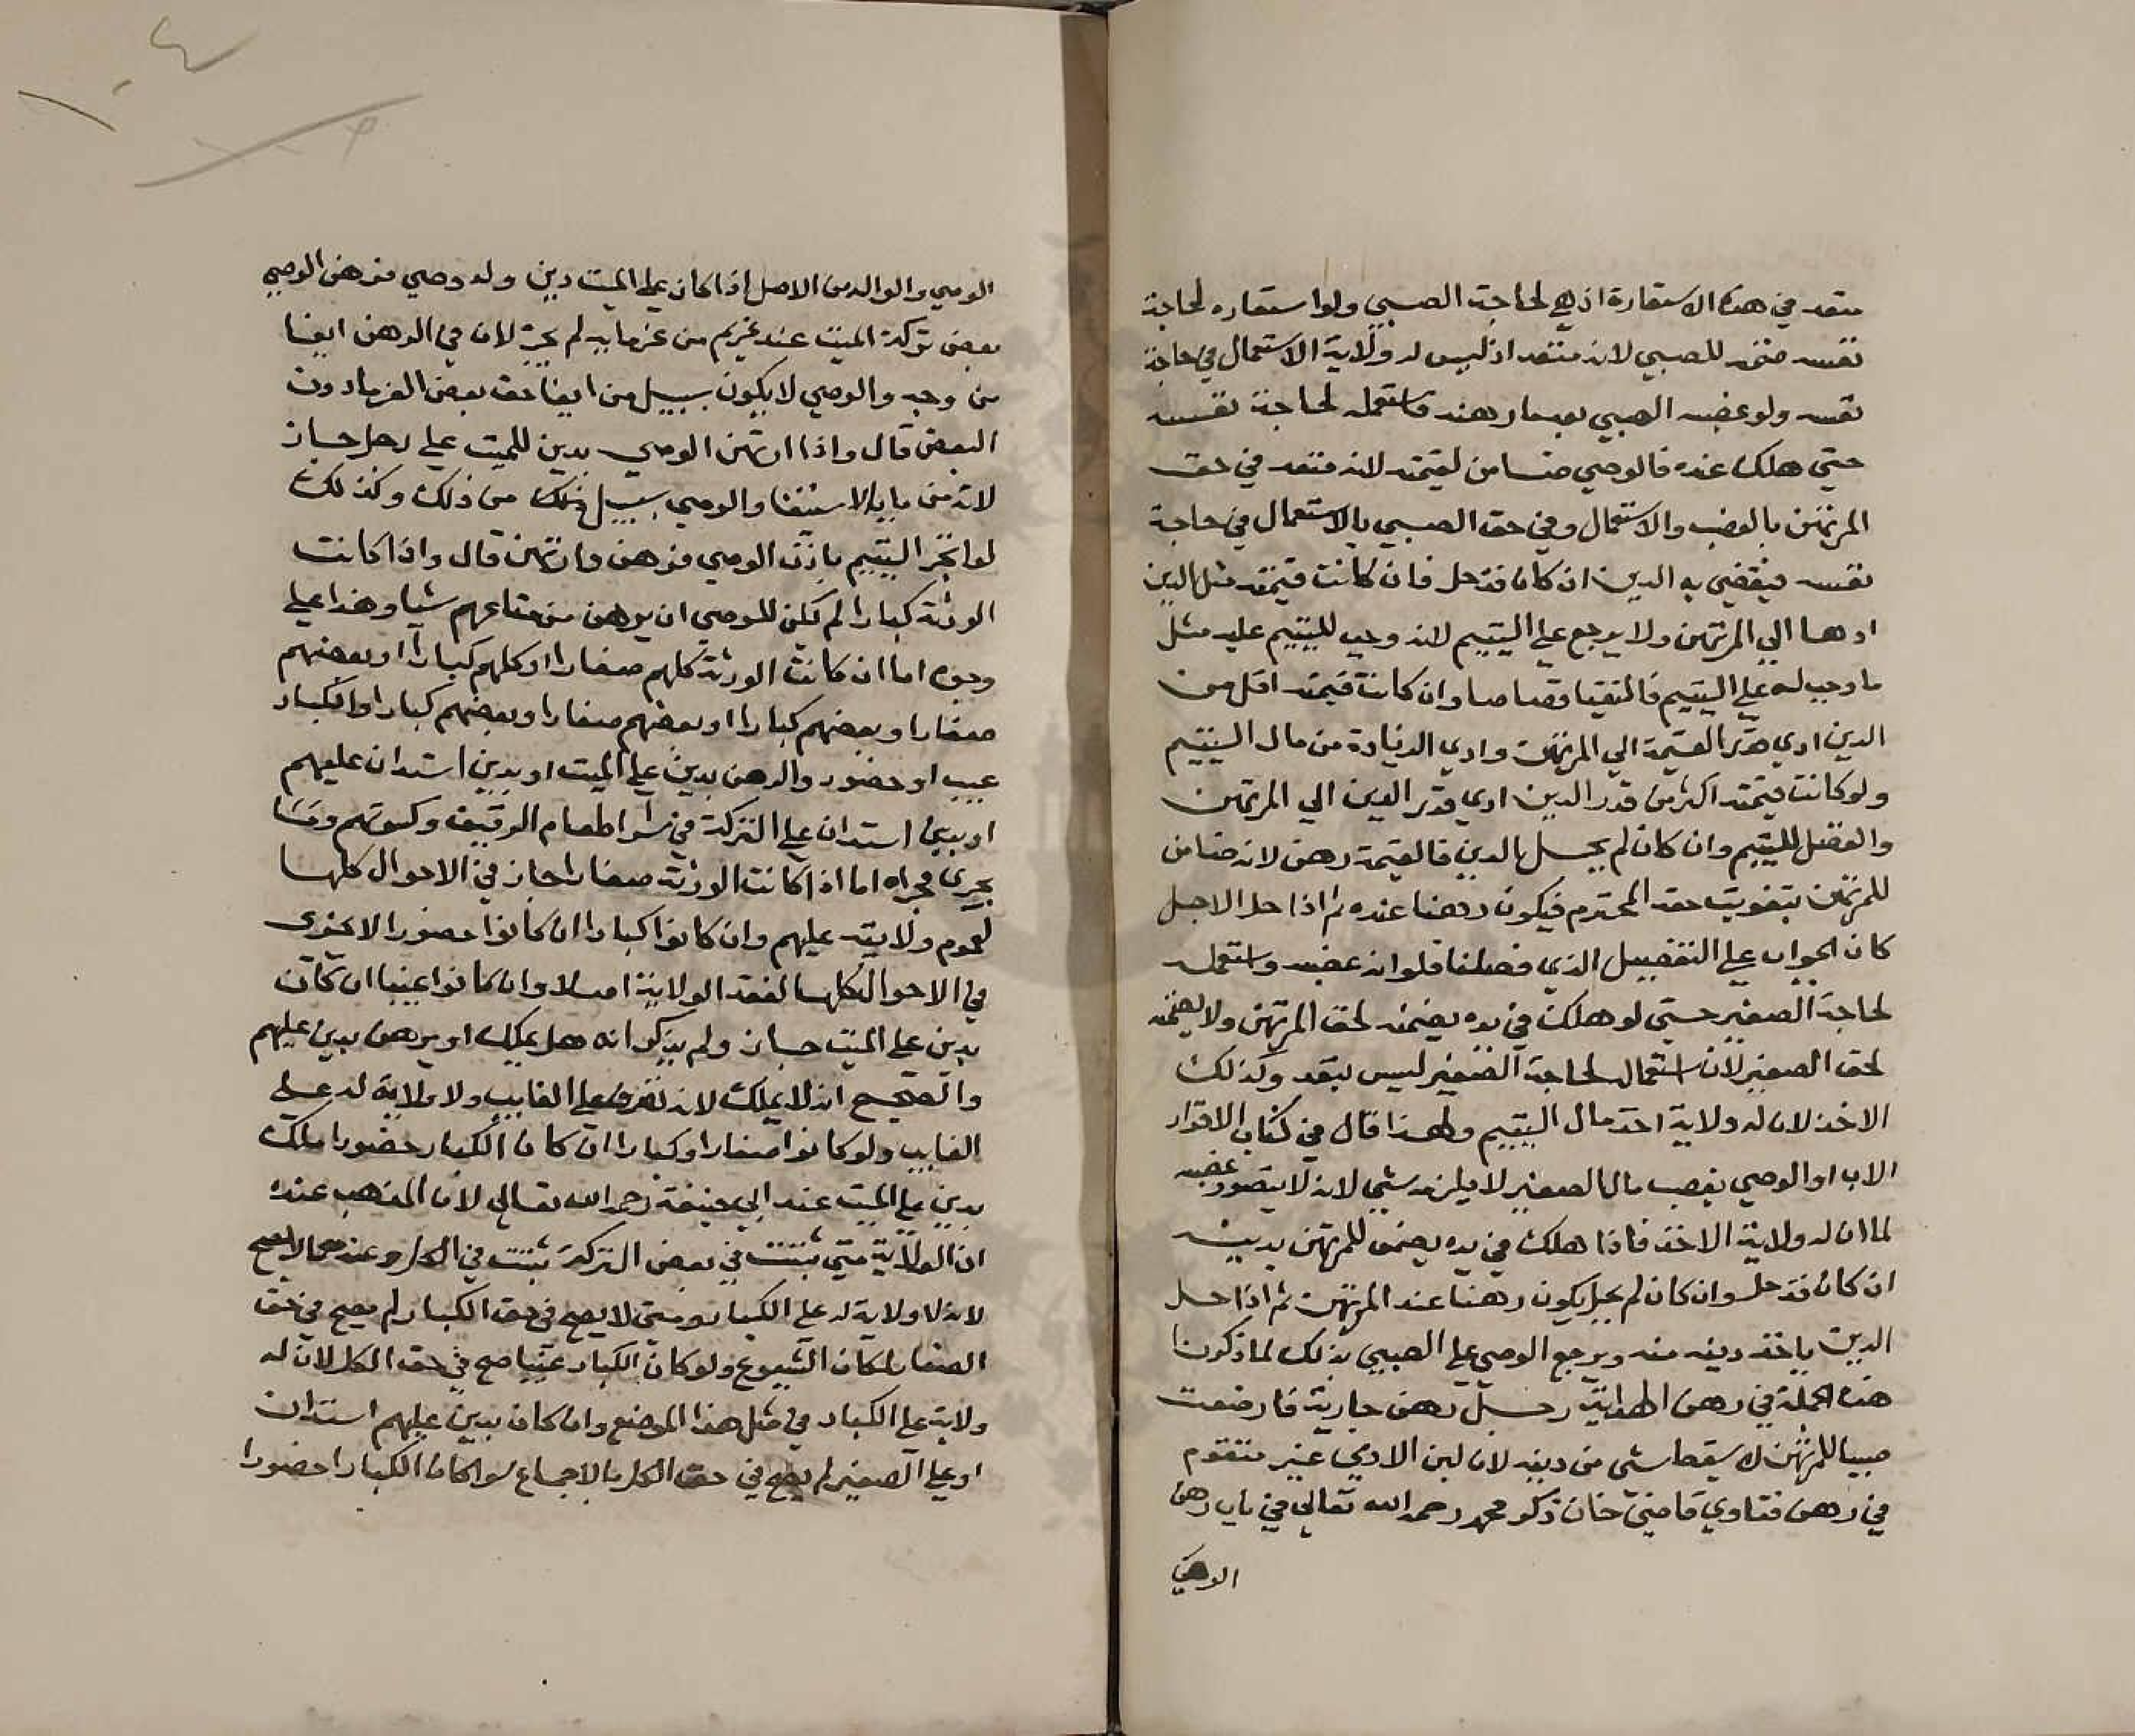 متعد في هذه الاستعارة اذ هي لحاجة الصبي ولو استعاره لحاجة
نفسه ضمنه للصبي لانه متعد اذ ليس له ولاية الاستعمال في حاجة
نفسه ولو غصبه الصبي بعد ما رهنه فاستعمله لحاجة نفسه
حتي هلك عنده فالوصي ضامن لقيمته لانه متعد في حق
المرتهن بالغصب والاستعمال وفي حق الصبي بالاستعمال في حاجة
نفسه فيقضي به الدين ان كان قد حل فان كانت قيمته مثل الدين
اداها الي المرتهن ولا يرجع علي اليتيم لانه وجب لليتيم عليه مثل
ما وجب له علي اليتيم فالتقيا قصاصا وان كانت قيمته اقل من
الدين ادي قدر القيمة الي المرتهن وادي الزيادة من مال اليتيم
ولو كانت قيمته اكثر من قدر الدين ادي قدر الدين الي المرتهن
والفضل لليتيم وان كان لم يحل الدين فالقيمة رهن لانه ضامن
للمرتهن بتفويت حقه المحترم فيكون رهنا عنده ثم اذا حل الاجل
كان الجواب علي التفصيل الذي فصلنا فلو انه غصبه واستعمله
لحاجة الصغير حتي لو هلك في يده يضمنه لحق المرتهن ولا يضمنه
لحق الصغير لان استعماله لحاجة الصغير ليس بتعد وكذلك
الاخذ لان له ولاية اخذ مال اليتيم ولهذا قال في كتاب الاقرار
الاب او الوصي بغصب مال الصغير لا يلزمه شي لانه لا يتصور غصبه
لما ان له ولاية الاخذ فاذا هلك في يده يضمن للمرتهن بدينه
ان كان قد حل وان كان لم يحل يكون رهنا عند المرتهن ثم اذا حل
الدين ياخذ دينه منه ويرجع الوصي علي الصبي بذلك لما ذكرنا
هذه الجملة في رهن الهداية رجل رهن جارية فارضعت
صبيا للمرتهن لا يسقط شي من دينه لان لبن الادمي غير متقوم
في رهن فتاوي قاضي خان ذكر محمد رحمه الله تعالي في باب رهن
الوصي
الوصي والوالد من الاصل اذا كان علي الميت دين وله وصي فرهن الوصي
بعض تركة الميت عند غريم من غرمايه لم يجز لان في الرهن ايفا
من وجه والوصي لا يكون بسبيل من ايفا حق بعض الغرما دون
البعض قال واذا ارتهن الوصي بدين للميت علي رجل جاز
لانه من باب الاستيفا والوصي بسبيل من ذلك وكذلك
لو اتجر اليتيم باذن الوصي فرهن وارتهن قال واذا كانت
الورثة كبارا لم يكن للوصي ان يرهن من متاعهم شيا وهذا علي
وجوه اما ان كانت الورثة كلهم صغارا او كلهم كبارا او بعضهم
صغارا وبعضهم كبارا او بعضهم صغارا وبعضهم كبارا والكبار
غيب او حضور والرهن بدين علي الميت او بدين استدان عليهم
او بدين استدان علي التركة في شرا طعام الرقيق وكسوتهم وما
يجري مجراه اما اذا كانت الورثة صغارا جاز في الاحوال كلها
لعموم ولايته عليهم وان كانوا كبارا ان كانوا حضورا لا يجوز
في الاحوال كلها لفقد الولاية اصلا وان كانوا غيبا ان كان
بدين علي الميت جاز ولم يذكر انه هل يملك او يرهن بدين عليهم
والصحيح انه لا يملك لانه تصرف علي الغايب ولا ولاية له علي
الغايب ولو كانوا صغارا وكبارا ان كان الكبار حضورا ملك
بدين علي الميت عند ابي حنيفة رحمه الله تعالي لان المذهب عنده
ان الولاية متي ثبتت في بعض التركة ثبتت في الكل وعندهما لا يصح
لانه لا ولاية له علي الكبار ومتي لا يصح في حق الكبار لم يصح في حق
الصغار لمكان الشيوع ولو كان الكبار غيبا صح في حق الكل لان له
ولاية علي الكبار في مثل هذا الموضع وان كان بدين عليهم استدان
او علي الصغير لم يصح في حق الكل بالاجماع سوا كان الكبار حضورا